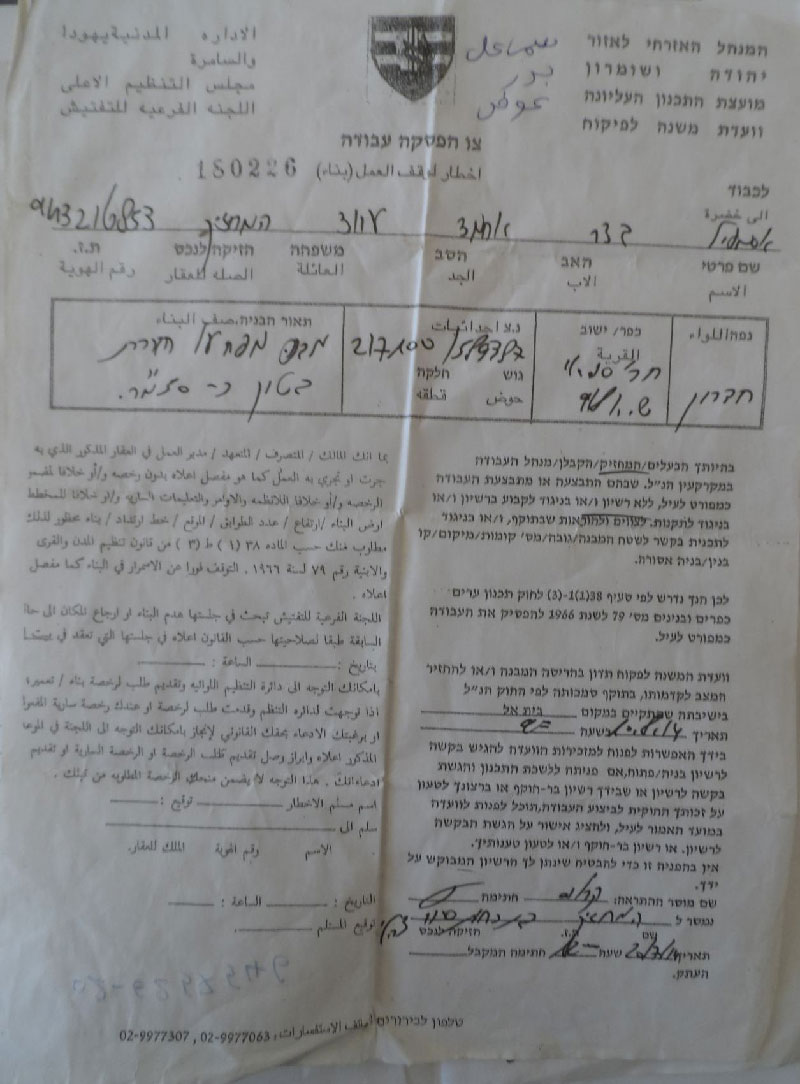 המנהל האזרחי לאזור
יהודה ושומרון
מועצת התכנון העליונה
וועדת משנה לפיקוח
الاداره المدنية يهودا
والسامرة
مجلس التنظيم الاعلى
اللجنه الفرعيه للتفتيش
اسماعيل
بدر
עו הפסקה עבודה
اخطار لوقف العمل (بناء) 180226
לכבוד
الى حضرة
שם פרטי האב הסב משפחה חזיקה לנכס ת.ז.
الاسم الاب الجد العائلة الصله للعقار رقم الهوية
נפה اللواء
חברון
כפר/ישוב
القرية
נ.צ احداثيات
217800/589787
גוש חלקה
حوض قطعه
תאור הבניה. صف البناء
בטון
בהיותך הבעלים/המחזיק/הקבלן/מנהל העבודה
במקרקעין הנ״ל. שבהם התבצעה או מתבצעת העבודה
כמפורט לעיל, ללא רשיון ו/או בניגוד לקבוע ברשיון ו/או
בניגוד לתקנות. לצווים ולהוראות שבתוקף, ו/או בניגוד
לתכנית בקשר לשטח המבנה/גובה/מס׳ קומות/מיקום/קו
בנין/בניה אסורה.
לכן הנך נדרש לפי סעיף 38(1)-(3) לחוק תכנון ערים
כפרים ובנינים מס׳ 79 לשנת 1966 להפסיק את העבודה
כמפורט לעיל.
וועדת המשנה לפקוח תדון בהריסת המבנה ו/או להחזיר
המצב לקדמותו, בתוקף סמכותה לפי החוק הנ״ל
בישיבתה שתתקיים במקום בית אל
תאריך בשעה
בידך האפשרות לפנות למזכירות הוועדה להגיש בקשה
לרשיון בניה/פתוח, אם פניתה ללשכת התכנון והגשת
בקשה לרשיון או שבידך רשיון בר-תוקף או ברצונך לטעון
על זכותך החוקית לביצוע העבודה, תוכל לפנות לוועדה
במועד האמור לעיל, ולהציג אישור על הגשת הבקשה
לרשיון. או רשיון בר-תוקף ו/או לטעון טענותיך.
אין בהפניה זו כדי להבטיח שינתן לך הרשיון המבוקש על
ידך.
שם מוסר ההתראה: חתימה
נמסר ל
שם ת.ז. חזיקה לנכס
תאריך שעה חתימת המקבל
העתק.
بما انك المالك / المتصرف / المتعهد / مدير العمل في العقار المذكور الذي به
جرت او تجري به العمل كما هو مفصل اعلاه بدون رخصه و/أو خلافا للمفسر
الرخصه و/أو خلافا للانظمه والاوامر والتعليمات الساريه و/او خلافا للمخطط
ارض البناء /ارتفاع / عدد الطوابق / الموقع / خط ارتداد / بناء محظور لذلك
مطلوب منك حسب الماده ٣٨ (١) ط (٣) من قانون تنظيم المدن والقرى
والابنية رقم ٧٩ لسنة ١٩٦٦ . التوقف فورا عن الاستمرار في البناء كما مفصل
اعلاه .
اللجنه الفرعية للتفتيش تبحث في جلستها هدم البناء او ارجاع المكان الى حالة
السابقة طبقا لصلاحيتها حسب القانون اعلاه في جلستها التي تعقد في
بتاريخ : الساعة :
بامكانك التوجه الى دائرة التنظيم اللوائيه وتقديم طلب لرخصة بناء / تعمير،
اذا توجهت لدائره التنظم وقدمت طلب لرخصة او عندك رخصة سارية المفعول
او برغبتك الادعاء بحقك القانوني لإنجاز بامكانك التوجه الى اللجنة في الموعد
المذكور اعلاه وابراز وصل تقديم طلب الرخصة او الرخصة السارية او تقديم
ادعاءاتك . هذا التوجه لا يضمن منحك الرخصة المطلوبه من قبلك .
اسم مسلم الاخطار توقيع :
سلم الى
الاسم رقم الهوية المالك للعقار.
التاريخ : الساعة :
توقيع المستلم
טלפון לבירורים لهاتف الاستفسارات: 02-9977063 , 02-9977307